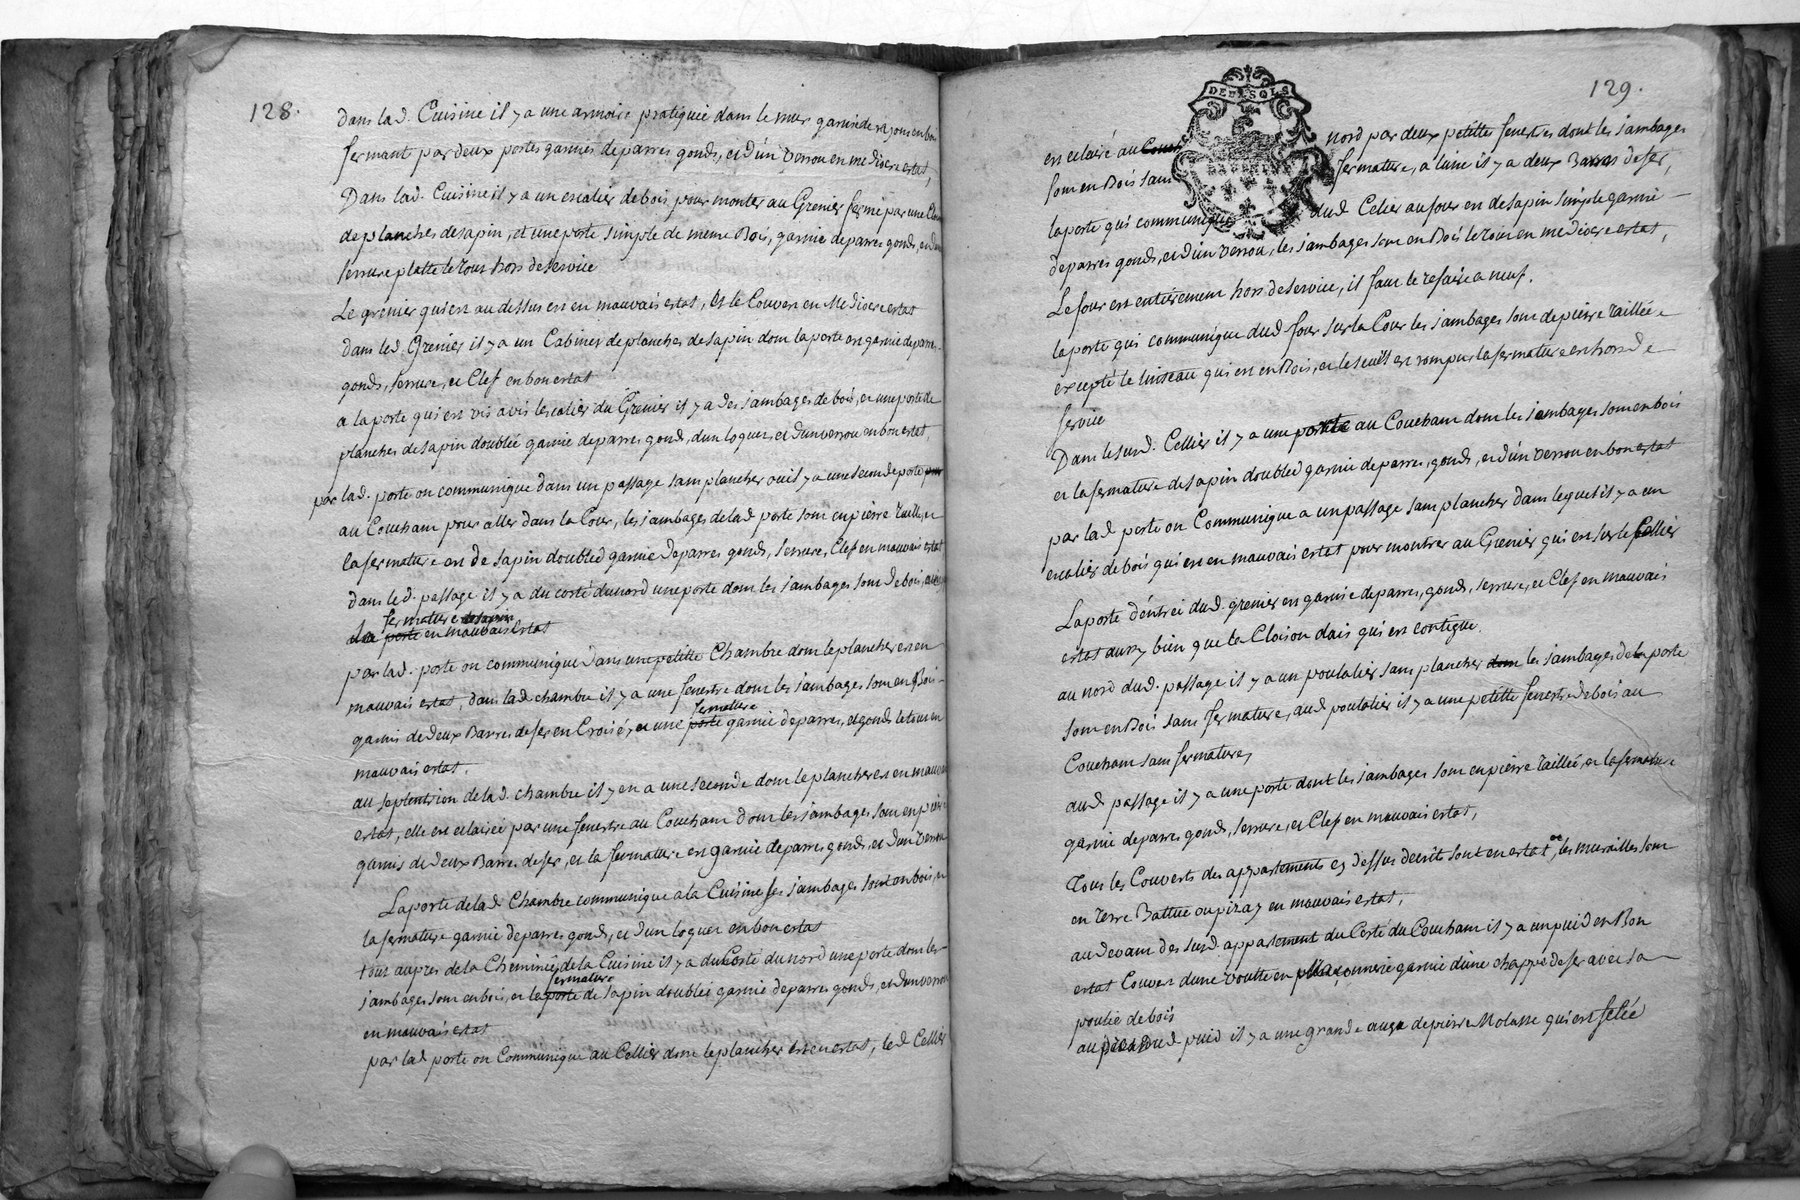 128.
dans lad. Cuisine il y a une armoire pratiquée dans le mur garnie de rayons en bois
fermant par deux portes garnies de parres gonds, et d'un verrou en mediocre estat,
Dans lad. Cuisine il y a un escalier de bois pour monter au Grenier fermé par une
de planches de sapin, et une porte simple de meme Bois, garnie de parres gonds, et d'une
serrure platte le tout hors de service
Le grenier qui est au dessus est en mauvais estat, et le Couvert en Mediocre estat
dans led. Grenier il y a un Cabinet de planches de sapin dont la porte est garnie de parres
gonds, serrure, et Clef en bon estat
a la porte qui est vis avis lescalier du Grenier il y a des jambages de bois, et une porte de
planches de sapin doublée garnie de parres gonds, d'un loquet, et d'un verrou en bon estat,
par lad. porte on communique dans un passage sans plancher ou il y a une seconde porte
au Couchant pour aller dans la Cour, les jambages de lad porte sont en pierre taillé, et
la fermature est de sapin doubled garnie de parres gonds, serrure, Clef en mauvais estat
dans led. passage il y a du costé du nord une porte dont les jambages sont de bois, avec
fermature de sapin
et la porte en mauvais Estat
par lad. porte on communique dans une petitte Chambre dont le plancher est en
mauvais estat, dans lad chambre il y a une fenestre dont les jambages sont en Bois
fermature
garnis de deux Barres de fer en Croisé, et une porte garnie de parres, et gonds le tout en
mauvais estat.
au septentrion de lad. chambre il y en a une seconde dont le plancher est en mauvais
estat, elle est eclairée par une fenestre au Couchant dont les jambages sont en pierre
garnis de deux Barres de fer, et la fermature est garnie de parres gonds, et d'un verrou
La porte de lad Chambre communique a la Cuisine les jambages sont en bois, et
la fermature garnie de parres gonds, et d'un loquet en bon estat
tout aupres de la Cheminée de la Cuisine il y a du Costé du nord une porte dont les
fermature
jambages sont en bois, et la porte de sapin doublée garnie de parres gonds, et d'un verrou
en mauvais estat
par lad porte on Communique au Cellier dont le plancher est en estat, led Cellier
129.
DEUX SOLS
est eclairé au Couch nord par deux petittes fenestres dont les jambages
sont en Bois sans fermature, a l'une il y a deux Barres de fer,
la porte qui communique dud Celier au four en de sapin simple garnie
de parres gonds, et d'un verrou, les jambages sont en Bois le tout en mediocre estat,
Le four est entièrement hors de service, il faut le refaire a neuf.
la porte qui communique dud four sur la Cour les jambages sont de pierre taillée
excepté le linteau qui est en Bois, et le seuil est rompu la fermature est hors de
service
Dans le susd. Cellier il y a une porte au Couchant dont les jambages sont en bois
et la fermature de sapin doubled garnie de parres, gonds, et d'un verrou en bon estat
par lad porte on Communique a un passage sans plancher dans lequel il y a un
escalier de bois qui est en mauvais estat pour montrer au Grenier qui est sur le Cellier
La porte d'entrée dud. grenier est garnie de parres, gonds, serrure, et Clef en mauvais
estat aussy bien que la Cloison dais qui est contigue.
au nord dud. passage il y a un poulalier sans plancher dont les jambages de la porte
sont en Bois sans fermature, aud poulalier il y a une petitte fenestre de bois au
Couchant sans fermature,
aud passage il y a une porte dont les jambages sont en pierre taillée, et la fermature
garnie de parres gonds, serrure, et Clef en mauvais estat,
Tous les Couverts des appartements cy dessus décrits sont en estat, les murailles sont
en terre Battue ou pizay en mauvais estat.
au devant des susd appartement du Costé du Couchant il y a un puid en Bon
estat Couvert d'une voutte en massonnerie garnie d'une chappe de fer avec sa
poulie de bois
au pied dud puid il y a une grande auge de pierre Molasse qui est felée